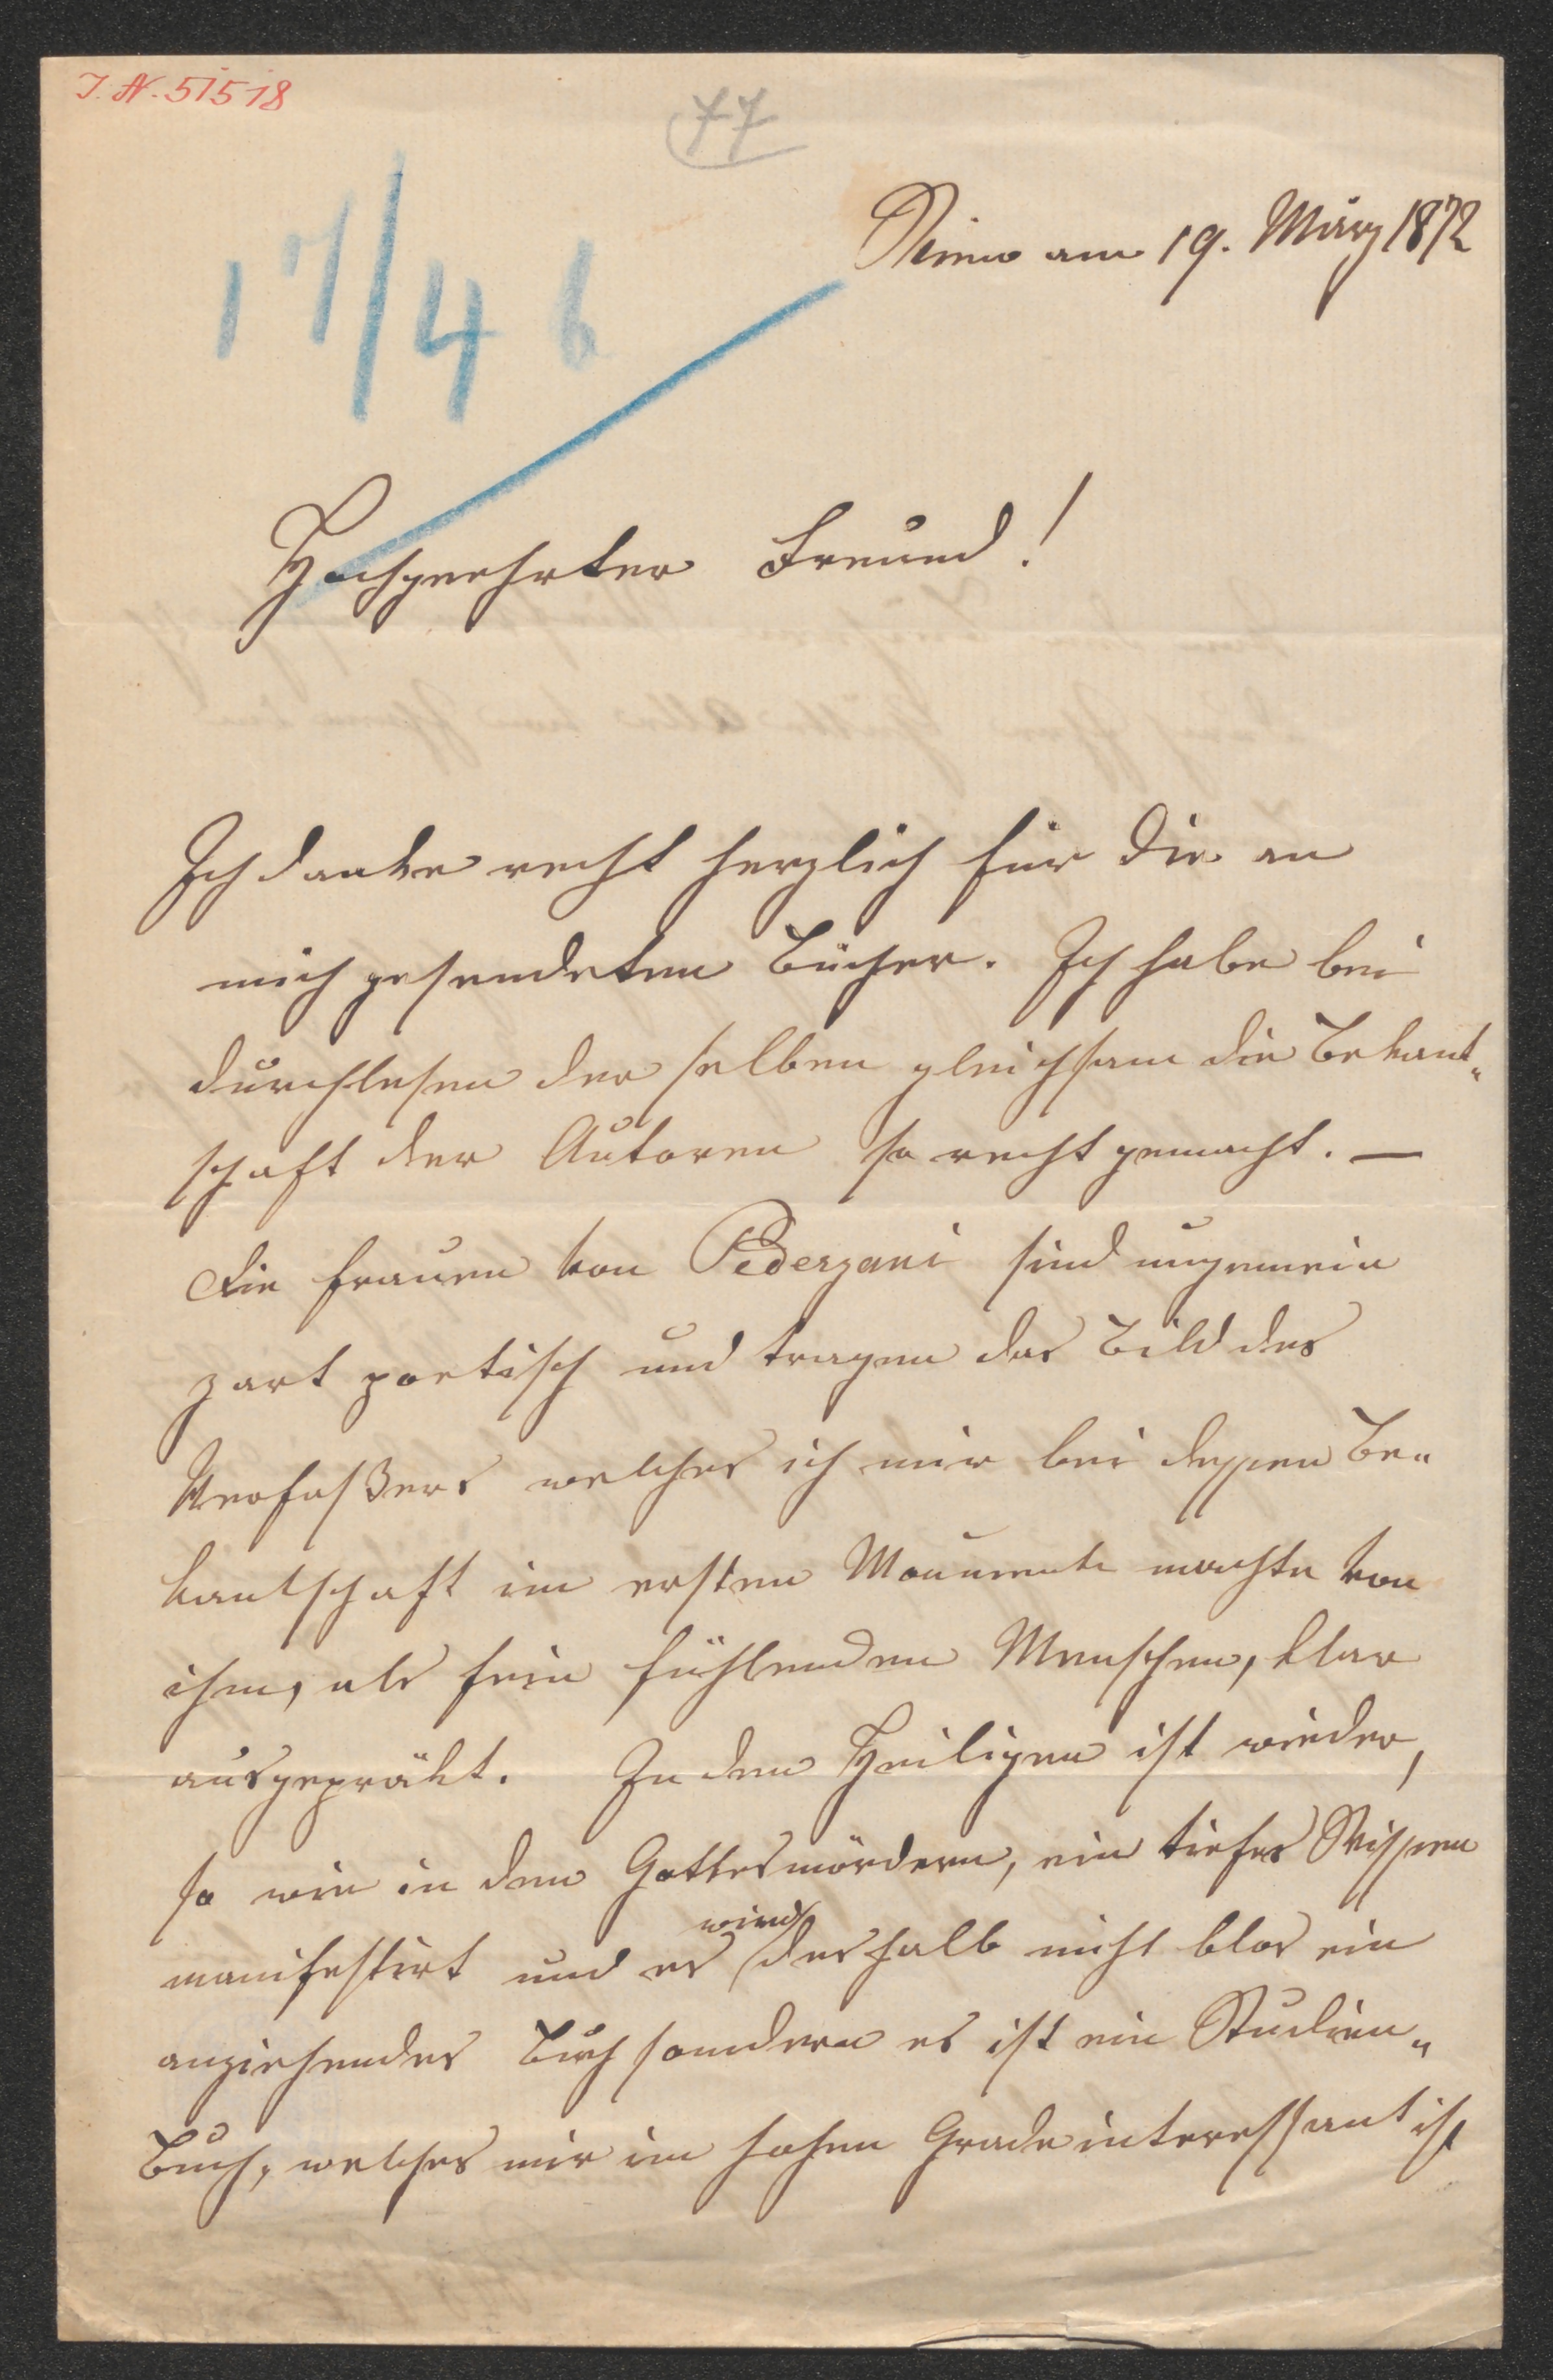 I. N. 51518
77
17/4 6
Wien am 19. März 1872
Hochgeehrter Freund!
Ich danke recht herzlich für die an
mich gesendeten Bücher. Ich habe bei
durchlesen der selben gleichsam die Bekant„
schaft der Autoren so recht gemacht. —
Die Frauen von Pederzani sind ungemein
zart poetisch und tragen das Bild des
Verfaßers welches ich mir bei dessen Be„
kantschaft im ersten Moumente machte von
ihm, als fein fühlenden Menschen, klar
ausgepräkt. In den Heiligen ist wieder,
so wie in den Gottesmördern, ein tiefes Wissen
wird
manifestirt und es deshalb nicht blos ein
anziehendes Buch sondern es ist ein Studien„
Buch, welches mir im hohen Grade interessant ist